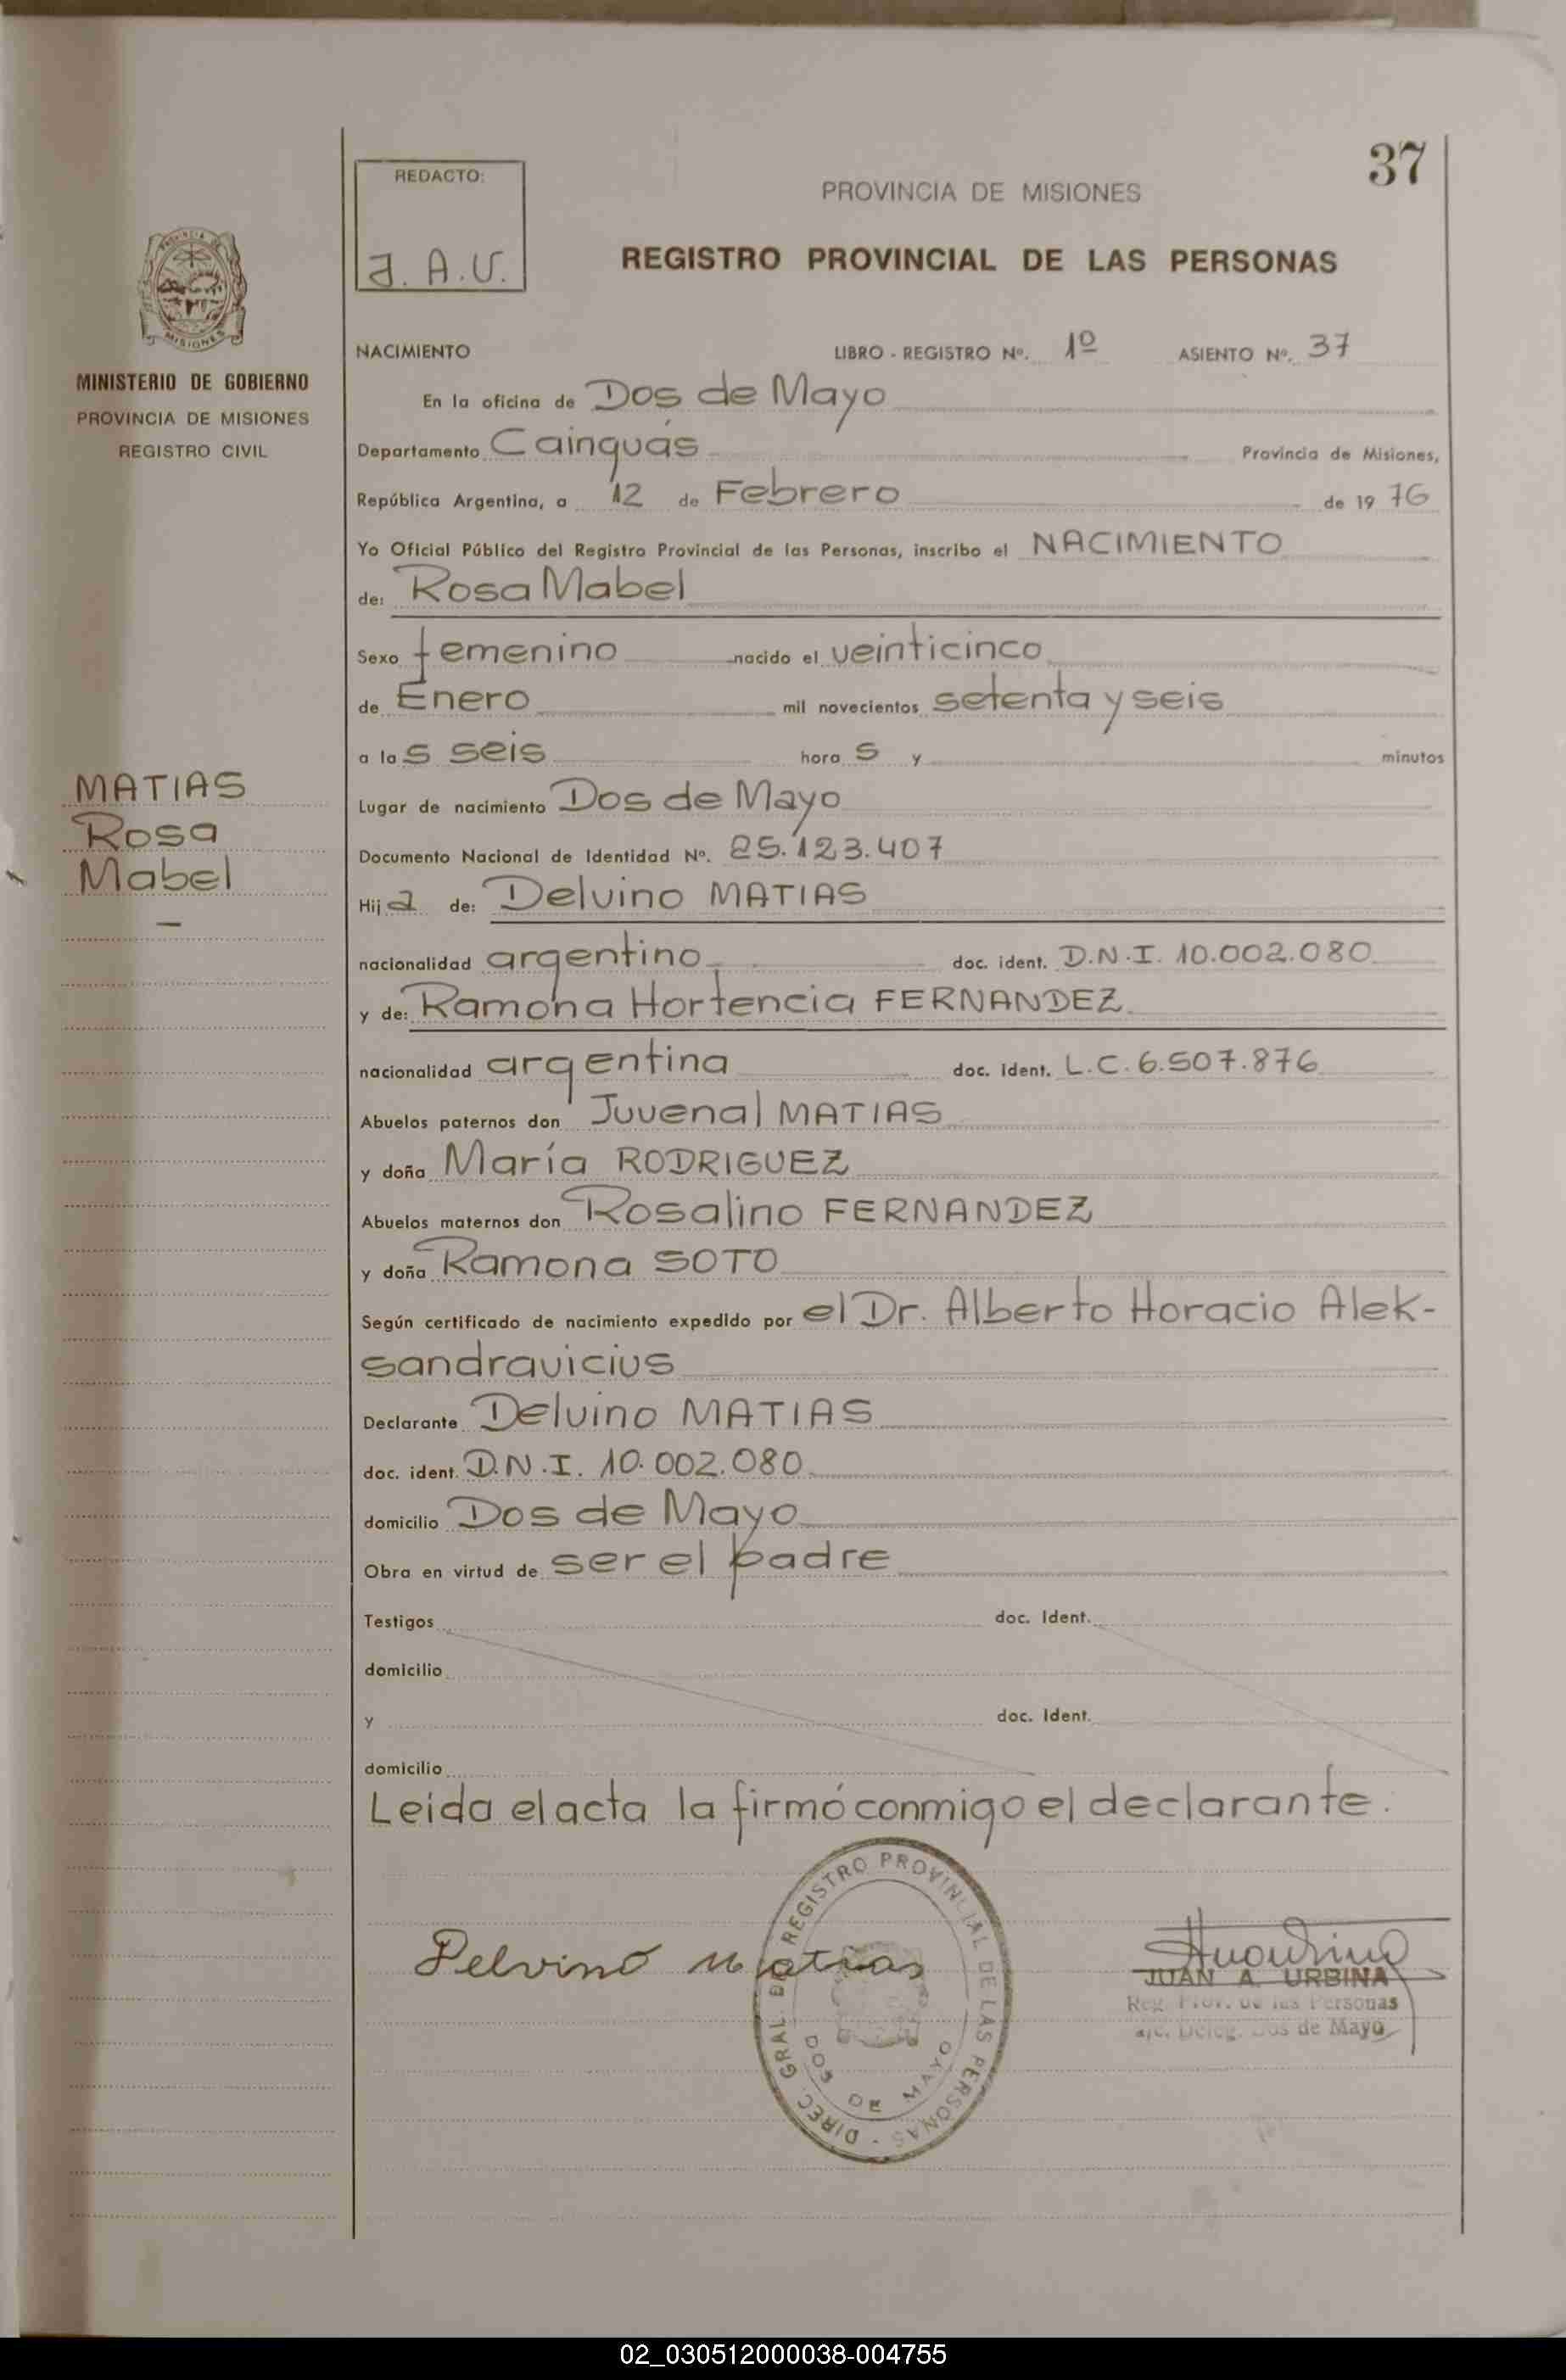 37
REDACTO:
J. A. U.
PROVINCIA DE MISIONES
REGISTRO PROVINCIAL DE LAS PERSONAS
PROVINCIA DE
MISIONES
MINISTERIO DE GOBIERNO
PROVINCIA DE MISIONES
REGISTRO CIVIL
MATIAS
Rosa
Mabel
—
NACIMIENTO LIBRO - REGISTRO Nº. 1º ASIENTO Nº. 37
En la oficina de Dos de Mayo
Departamento Cainguás Provincia de Misiones,
República Argentina, a 12 de Febrero de 19 76
Yo Oficial Público del Registro Provincial de las Personas, inscribo el NACIMIENTO
de: Rosa Mabel
Sexo femenino nacido el veinticinco
de Enero mil novecientos setenta y seis
a las seis horas y minutos
Lugar de nacimiento Dos de Mayo
Documento Nacional de Identidad Nº. 25.123.407
Hija de: Delvino MATIAS
nacionalidad argentino doc. ident. D.N.I. 10.002.080
y de: Ramona Hortencia FERNANDEZ
nacionalidad argentina doc. ident. L.C. 6.507.876
Abuelos paternos don Juvenal MATIAS
y doña María RODRIGUEZ
Abuelos maternos don Rosalino FERNANDEZ
y doña Ramona SOTO
Según certificado de nacimiento expedido por el Dr. Alberto Horacio Alek-
sandravicius
Declarante Delvino MATIAS
doc. ident. D.N.I. 10.002.080
domicilio Dos de Mayo
Obra en virtud de ser el padre
Testigos doc. Ident.
domicilio
y doc. Ident.
domicilio
Leida el acta la firmó conmigo el declarante.
Delvino Matias
DIREC. GRAL. DEL REGISTRO PROVINCIAL DE LAS PERSONAS -
DOS DE MAYO
JUAN A. URBINA
Reg. Prov. de las Personas
a/c. Deleg. Dos de Mayo
02_030512000038-004755